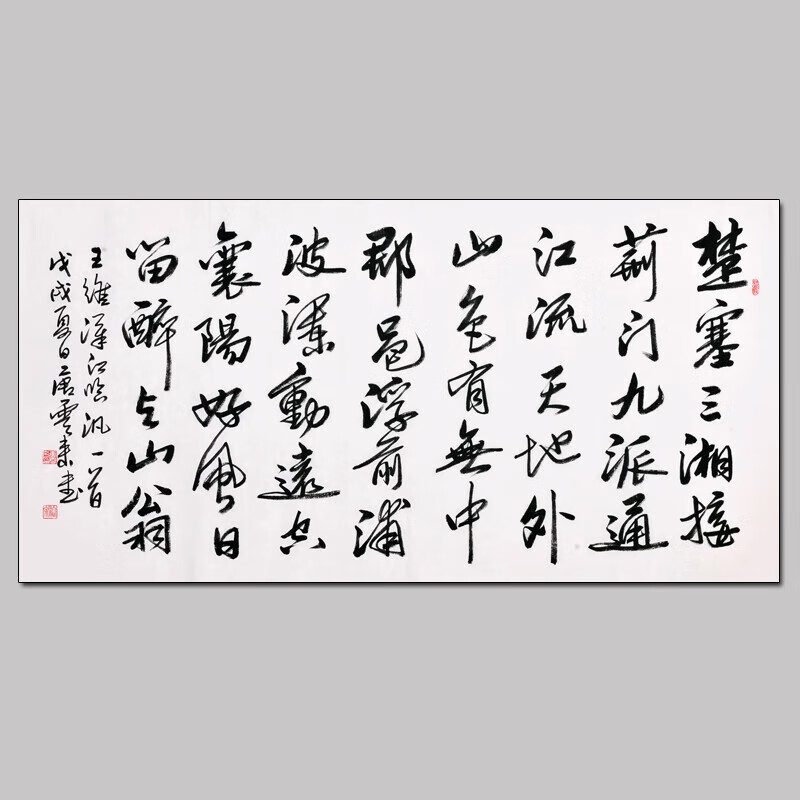 楚塞三湘接
荊门九派通
江流天地外
山色有無中
郡邑浮前浦
波瀾動遠空
襄陽好風日
留醉与山翁
王維漢江臨汎一首
戊戌夏日唐雲來书